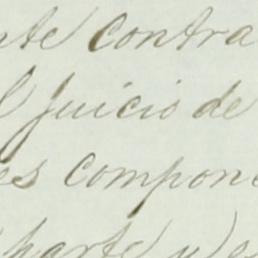 nte contra
l juicio de
es compon
parte y es